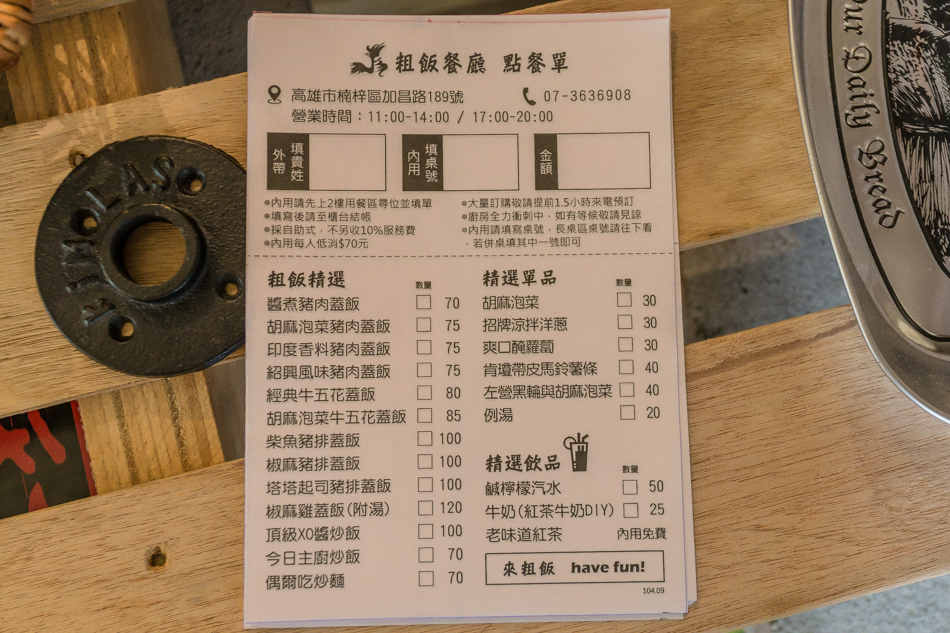 粗飯餐廳 點餐單
高雄市楠梓區加昌路189號 07-3636908
營業時間：11:00-14:00 / 17:00-20:00
外帶 填貴姓 內用 填桌號 金額
●內用請先上2樓用餐區尋位並填單
●填寫後請至櫃台結帳
●採自助式，不另收10%服務費
●內用每人低消$70元
●大量訂購敬請提前1.5小時來電預訂
●廚房全力衝刺中，如有等候敬請見諒
●內用請填寫桌號，長桌區桌號請往下看
，若併桌填其中一號即可
粗飯精選 數量
醬煮豬肉蓋飯 70
胡麻泡菜豬肉蓋飯 75
印度香料豬肉蓋飯 75
紹興風味豬肉蓋飯 75
經典牛五花蓋飯 80
胡麻泡菜牛五花蓋飯 85
柴魚豬排蓋飯 100
椒麻豬排蓋飯 100
塔塔起司豬排蓋飯 100
椒麻雞蓋飯(附湯) 120
頂級XO醬炒飯 100
今日主廚炒飯 70
偶爾吃炒麵 70
精選單品 數量
胡麻泡菜 30
招牌涼拌洋蔥 30
爽口醃蘿蔔 30
肯瓊帶皮馬鈴薯條 40
左營黑輪與胡麻泡菜 40
例湯 20
精選飲品 數量
鹹檸檬汽水 50
牛奶(紅茶牛奶DIY) 25
老味道紅茶 內用免費
來粗飯 have fun!
104.09
Our Daily Bread